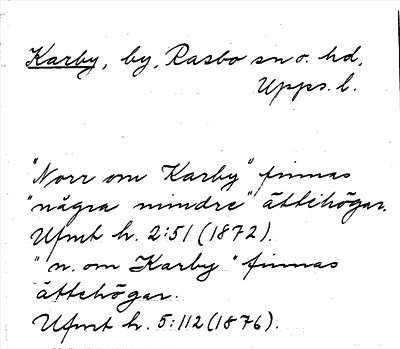 Karby, by, Rasbo sn o. hd,
Upps. l.
"Norr om Karby" finnas
"några mindre" ättehögar.
Ufmt h. 2:51 (1872).
"n. om Karby" finnas
ättehögar.
Ufmt h. 5:112 (1876).